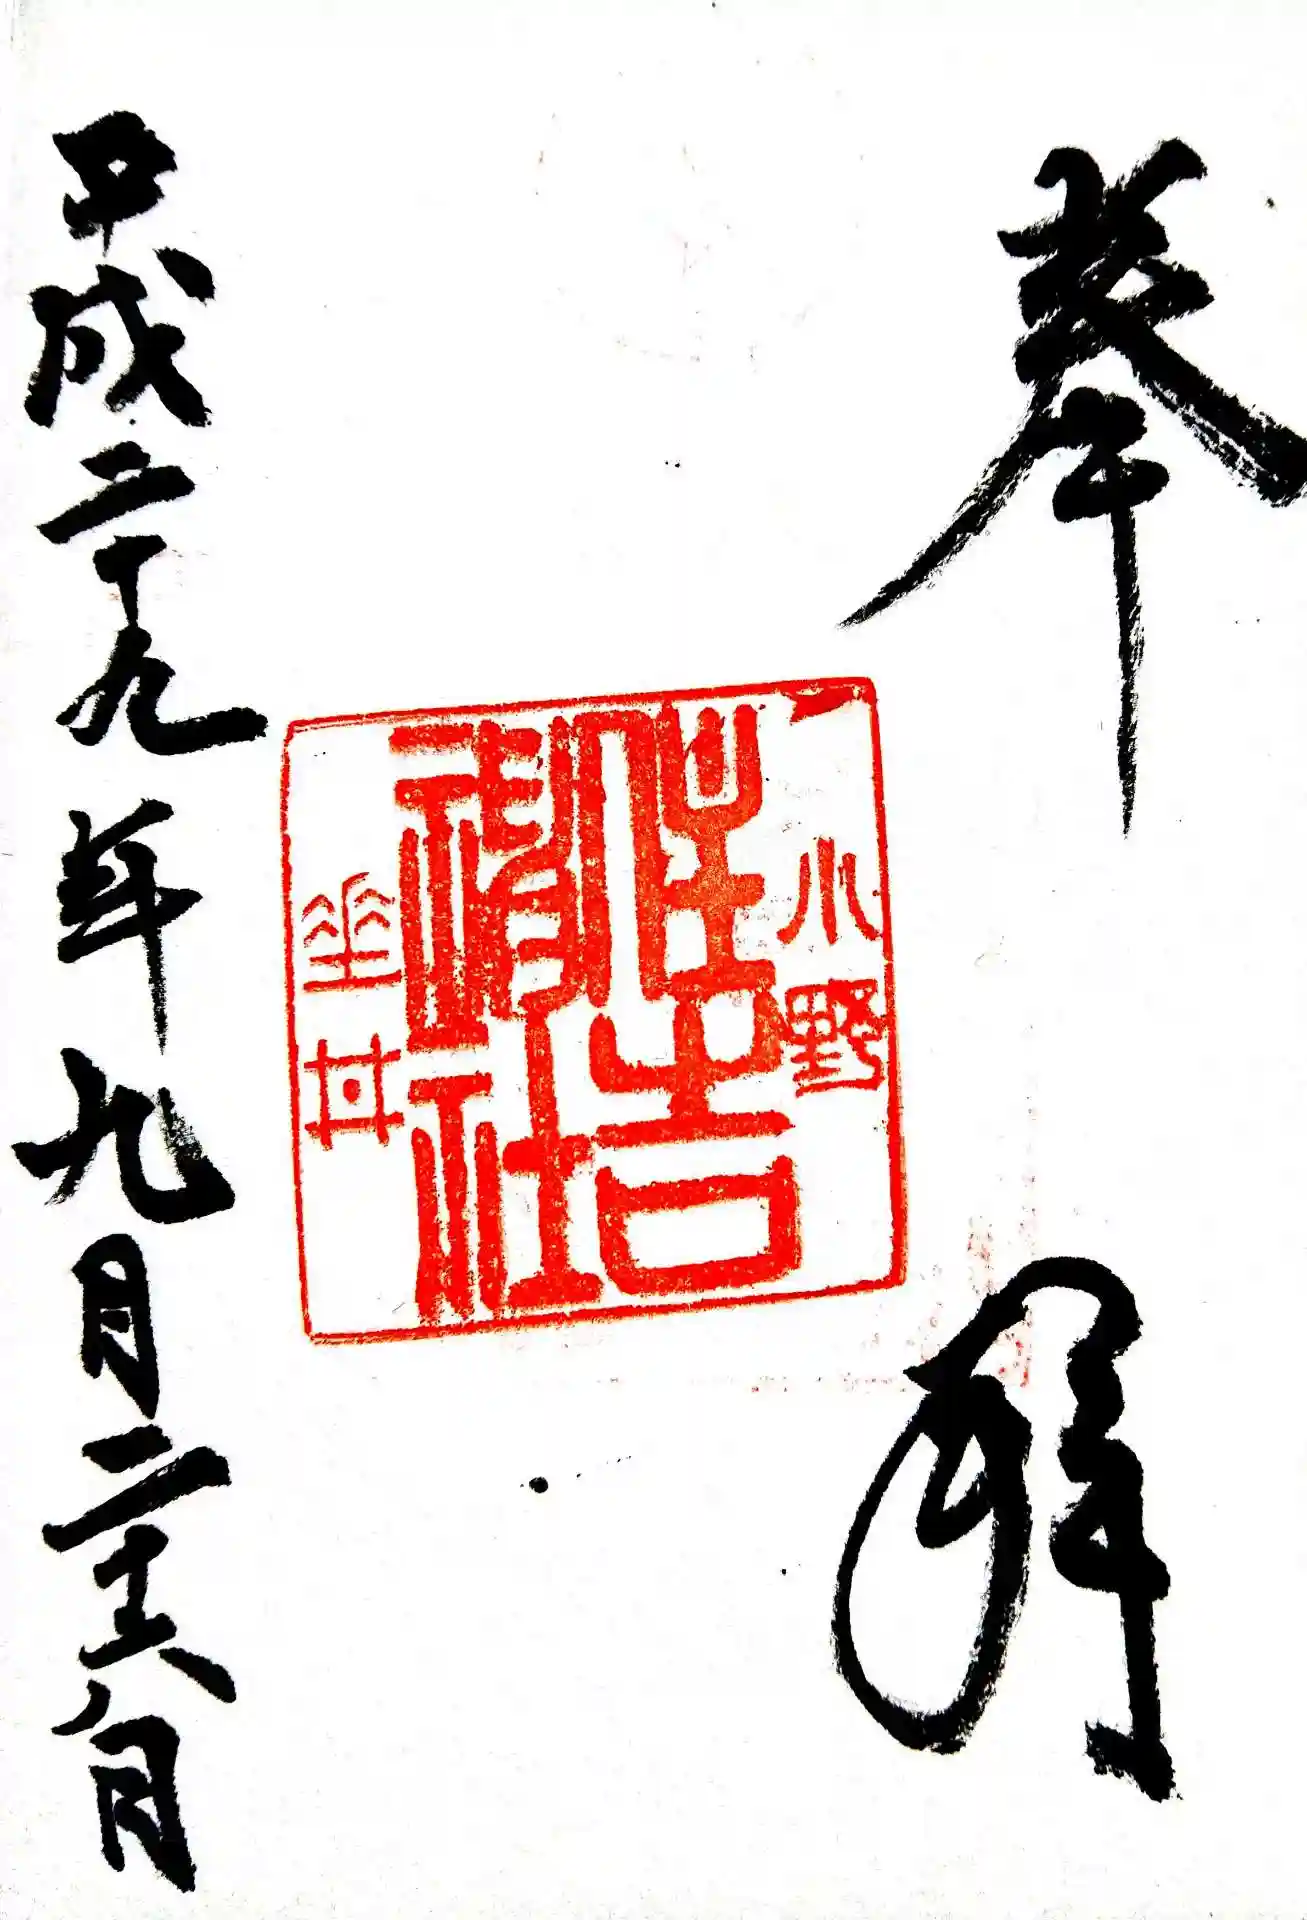 奉拝
小野
住吉
神社
垂井
平成二十九年九月二十六日